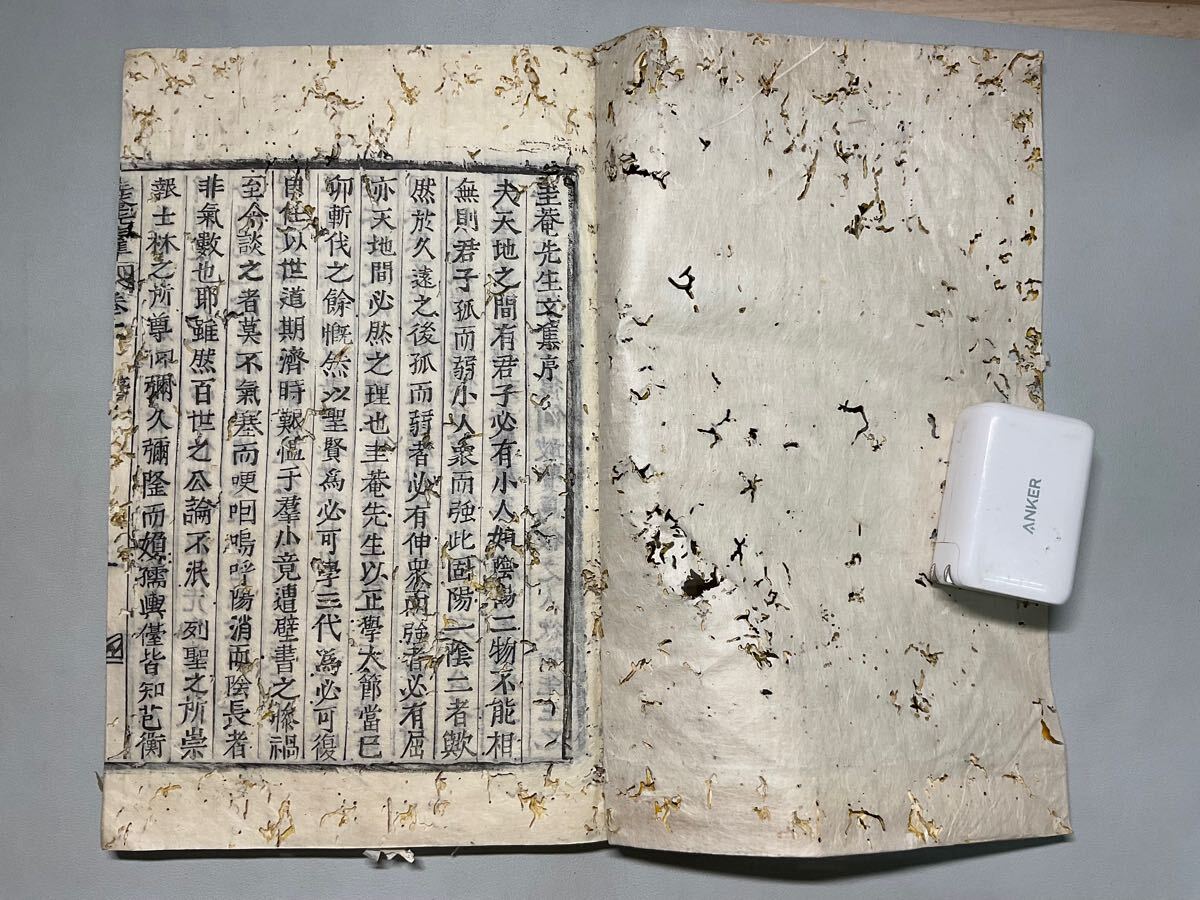 圭菴先生文集序
夫天地之間有君子必有小人如陰陽二物不能相
無則君子孤而弱小人衆而強此固陽一陰二者歟
然於久遠之後孤而弱者必有伸衆而強者必有屈
亦天地間必然之理也圭菴先生以正學大節當巳
卯斬伐之餘慨然以聖賢爲必可學三代爲必可復
自任以世道期濟時艱慍于羣小竟遭壁書之慘禍
至今談之者莫不氣塞而哽咽嗚呼陽消而陰長者
非氣數也耶雖然百世之公論不泯列聖之所崇
報士林之所尊向彌久彌隆而婦孺輿儓皆知芭衡
ANKER